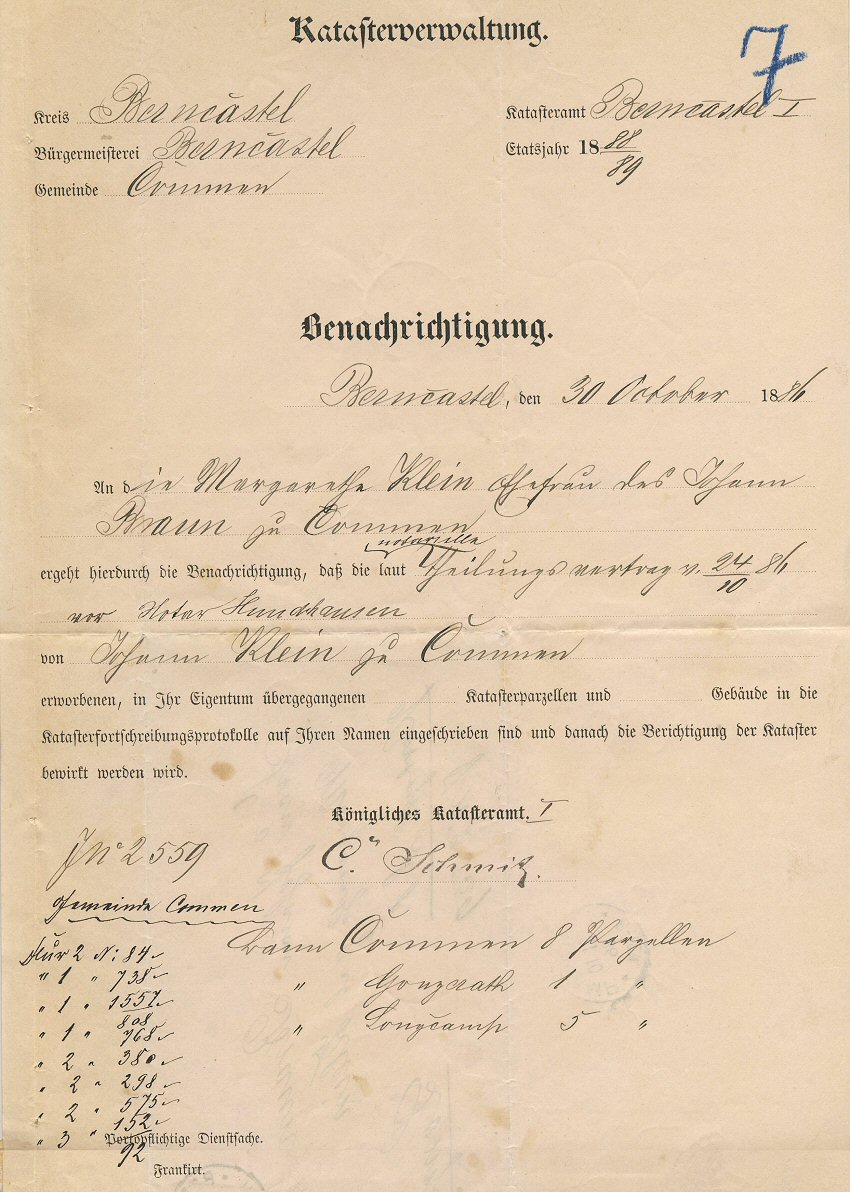 Katasterverwaltung.
7
Kreis Berncastel
Katasteramt Berncastel I
Bürgermeisterei Berncastel
Etatsjahr 1888/89
Gemeinde Commen
Benachrichtigung.
Berncastel, den 30 October 1886
An die Margarethe Klein Ehefrau des Johann
Braun zu Commen
notarielle
ergeht hierdurch die Benachrichtigung, daß die laut Theilungsvertrag v. 24/10 86
vor Notar Hundhausen
von Johann Klein zu Commen
erworbenen, in Ihr Eigentum übergegangenen Katasterparzellen und Gebäude in die
Katasterfortschreibungsprotokolle auf Ihren Namen eingeschrieben sind und danach die Berichtigung der Kataster
bewirkt werden wird.
Königliches Katasteramt. I
J No 2559
C. Schmitz.
Gemeinde Commen
Bann Commen 8 Parzellen
" Gonzerath 1 "
" Longcamp 5 "
Flur 2 N: 84
" 1 " 738
" 1 " 1557/808
" 1 " 768
" 2 " 380
" 2 " 298
" 2 " 575
" 3 " 152/92
Portopflichtige Dienstsache.
Frankirt.